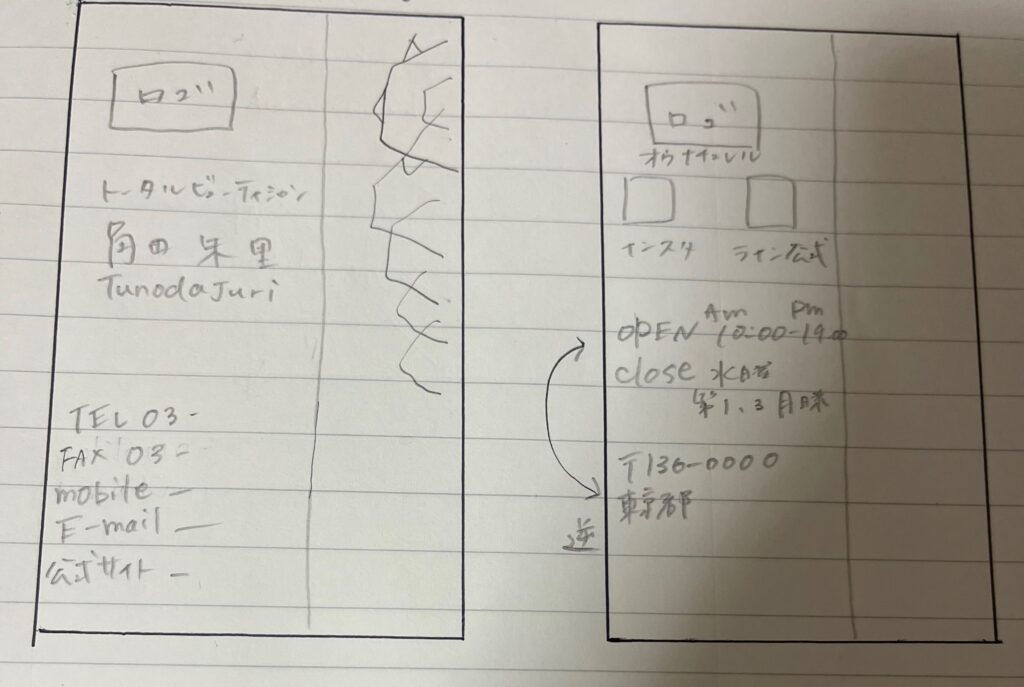 ロゴ
トータルビューティシャン
角田 朱里
Tunoda Juri
TEL 03-
FAX 03-
mobile -
E-mail -
公式サイト -
ロゴ
オウナチュレル
インスタ
ライン公式
Am Pm
OPEN 10:00-19:00
close 水曜
第1、3月曜
〒136-0000
東京都
逆